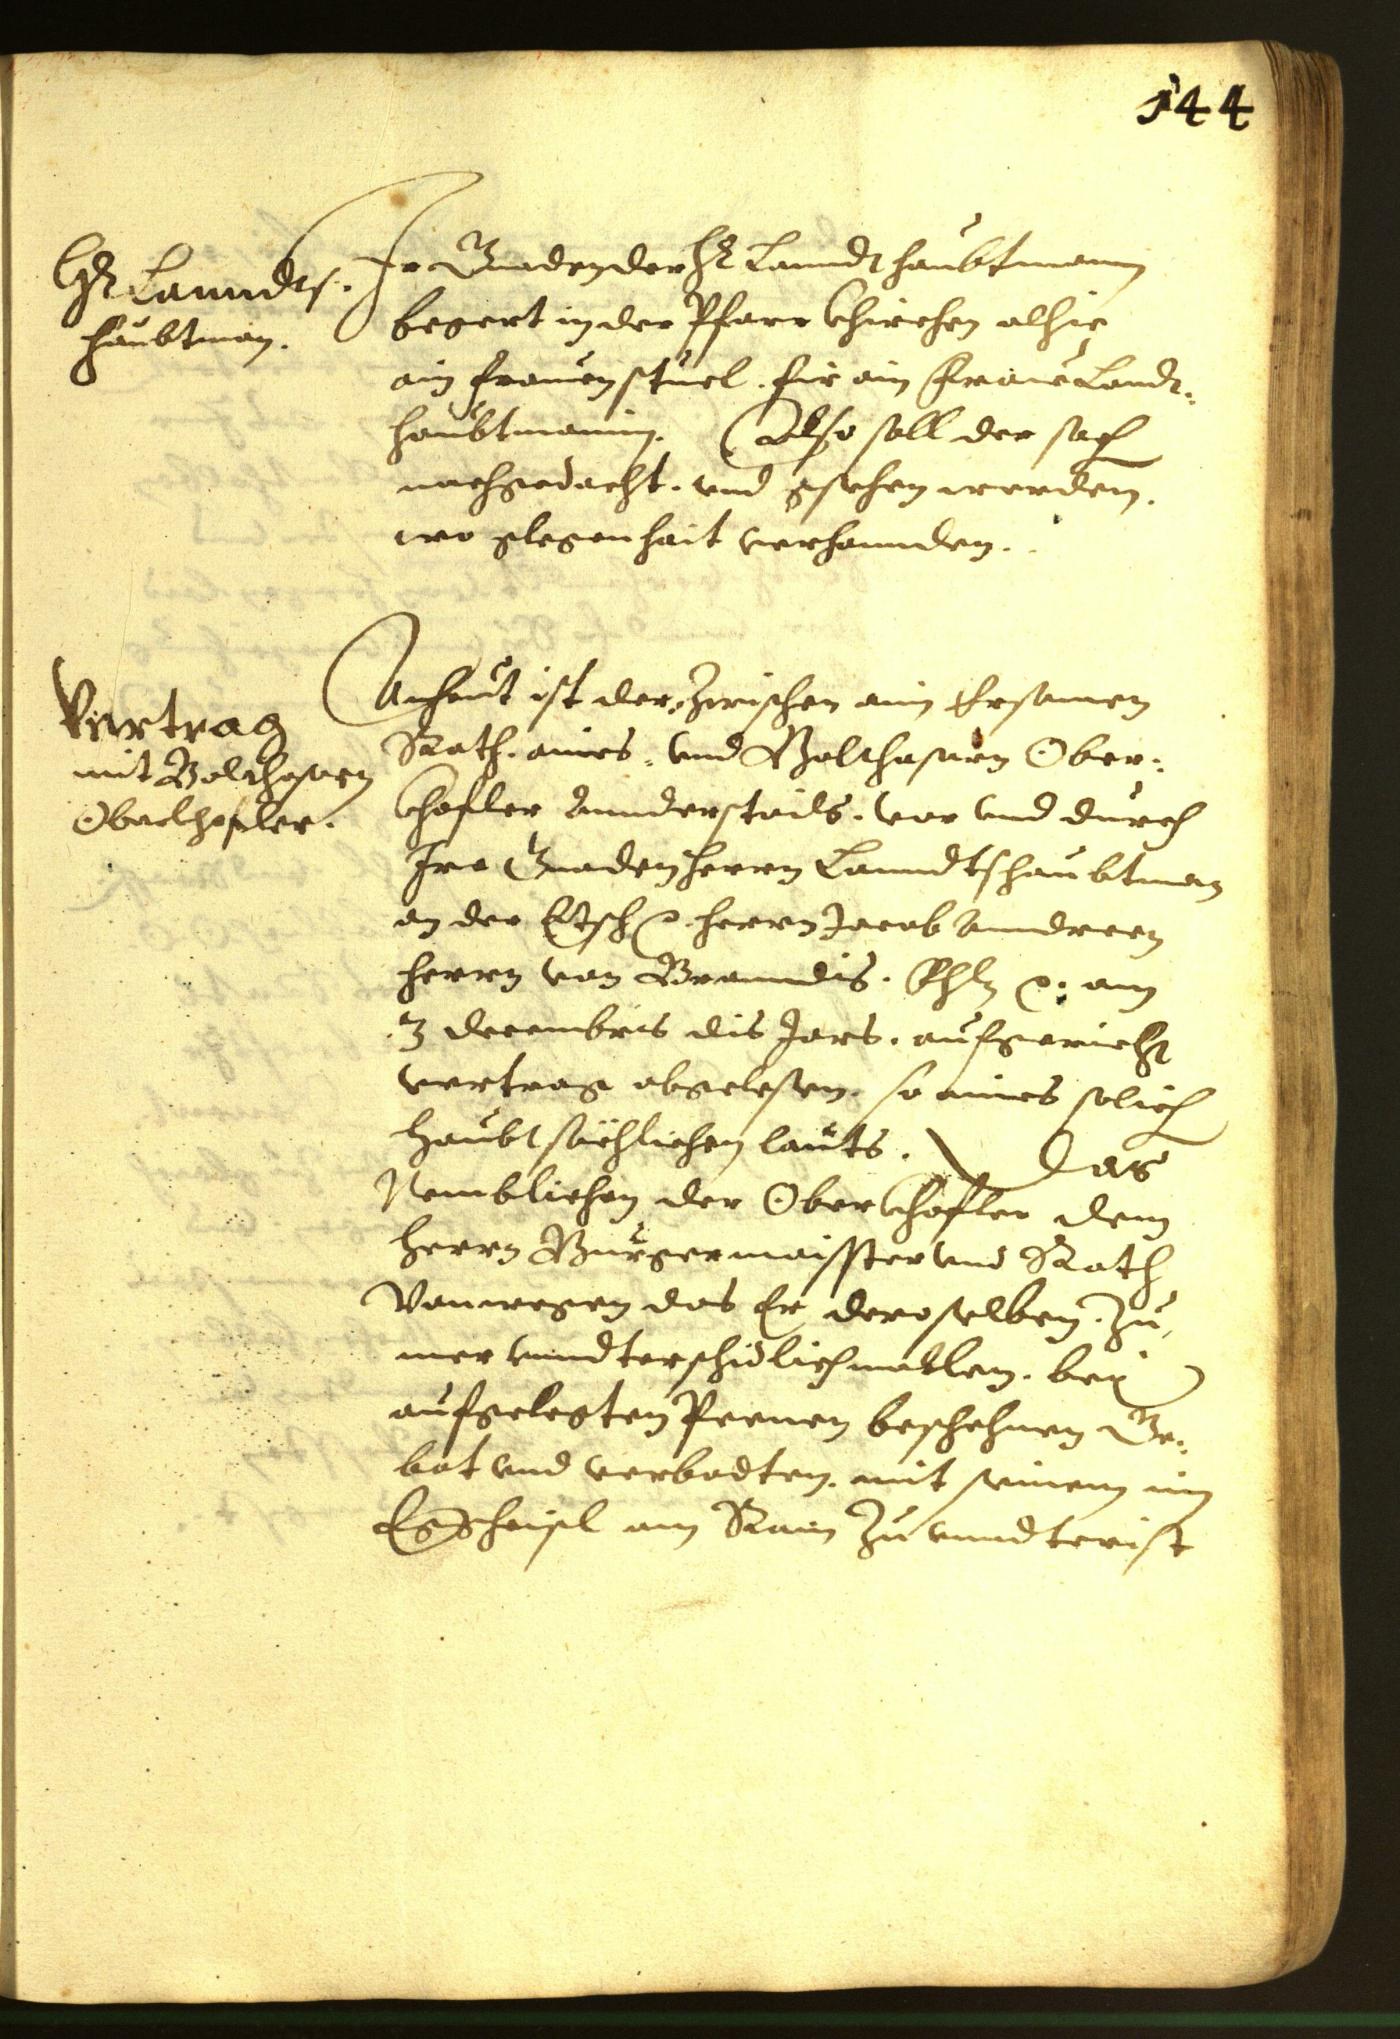 144
Hr Lanndts-
haubtman.
Ir Gnaden der Hr Lanndtshaubtmann
begert in der Pfarr Khirchen alhie
ain frauen stuel. fir ain Frau Landt-
haubtmanin. Also soll der sach
nachgedacht. vnd gsehen werden.
wo glegenhait verhannden.
Vertrag
mit Balthasarn
Oberkhofler.
Anheut ist der, Zwischen aim Ersamen
Rath. aines, vnd Balthasarn Ober-
khofler annderstails. vor vnd durch
Ire Gnaden Herrn Lanndtshaubtman
an der Etsch ꝛ. Herrn Jacob Anndreen
Herrn von Branndis. ꝛ: am
3 decembris dis Jars. aufgericht
vertrag abgelesen. so aines solich
Haubtsächlichen lauts. Das
Nemblichen der Oberkhofler dem
Herrn Burgermaisster vnd Rath
Von wegen das Er deroselben. Zu
mer vnndterschidlichmallen. bej
aufgelegten Peenen beschehnen Ge-
bot vnd verbodten. mit seinem im
Egkheisl am Rain Zu vnndterist